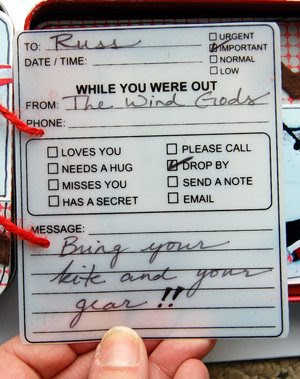 TO: Russ
☐ URGENT
☑ IMPORTANT
☐ NORMAL
☐ LOW
DATE / TIME:
WHILE YOU WERE OUT
FROM: The Wind Gods
PHONE:
☐ LOVES YOU ☐ PLEASE CALL
☐ NEEDS A HUG ☑ DROP BY
☐ MISSES YOU ☐ SEND A NOTE
☐ HAS A SECRET ☐ EMAIL
MESSAGE:
Bring your
kite and your
gear !!